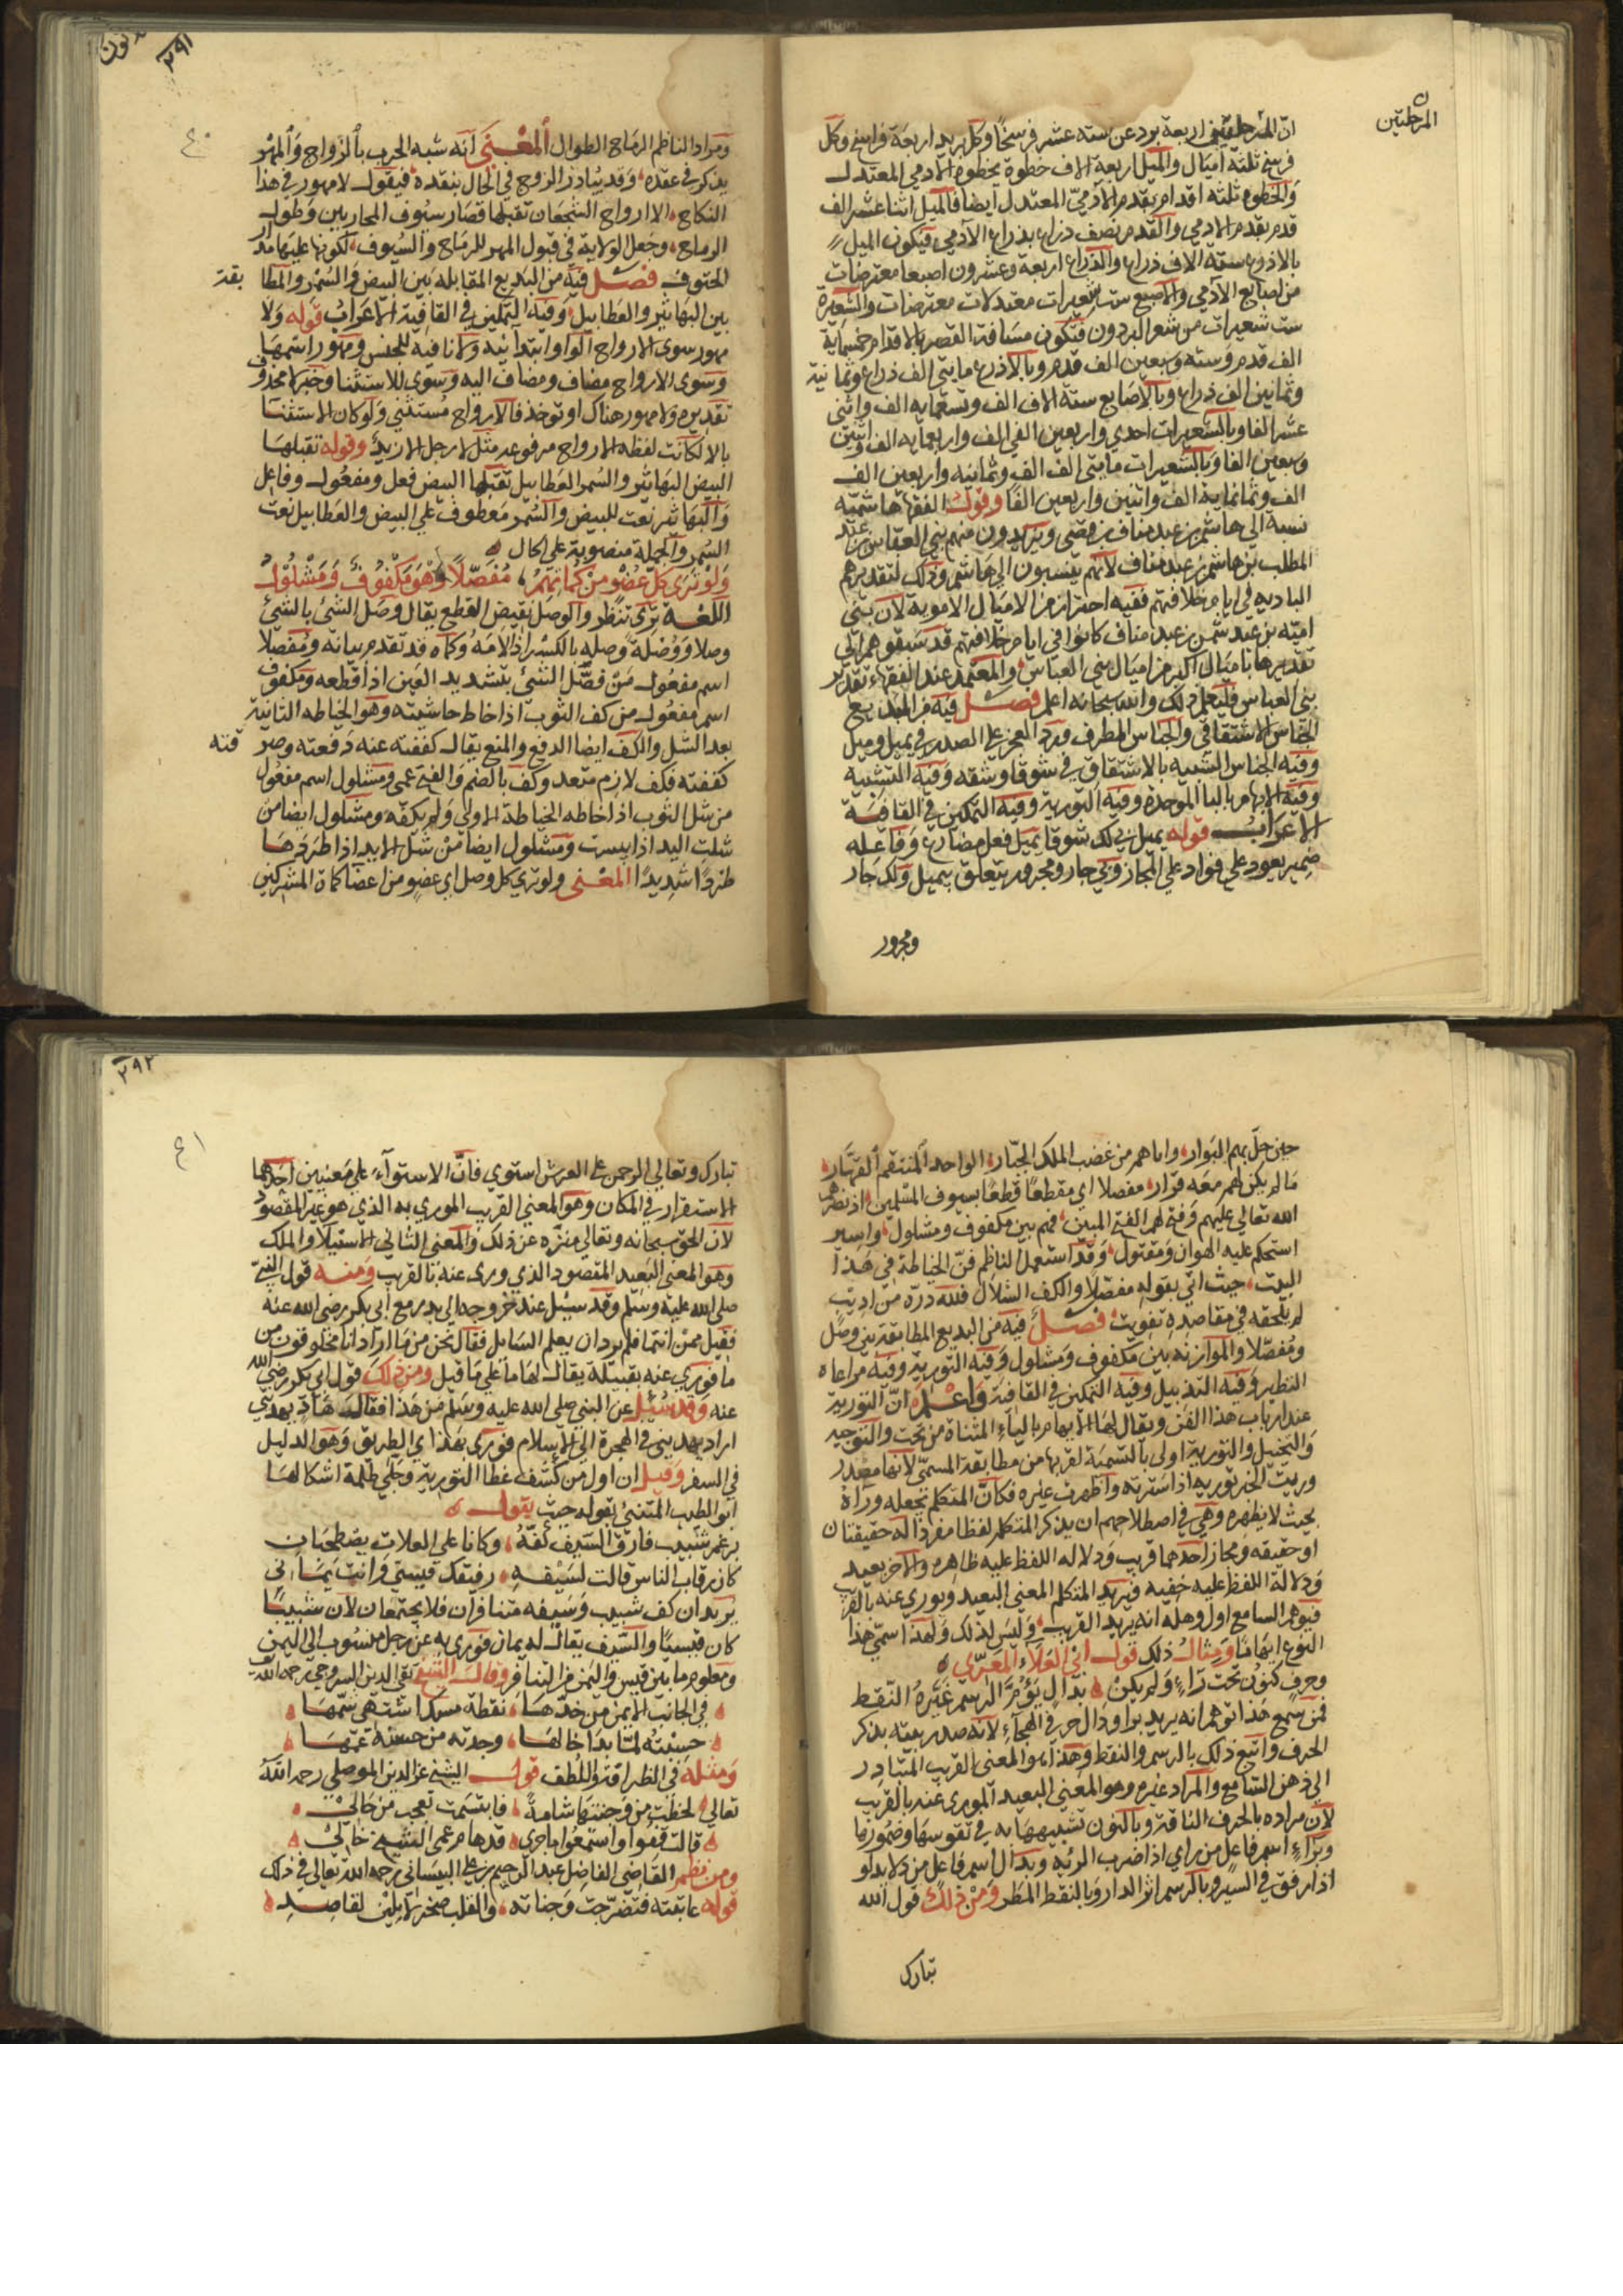 المرحلتين
ان المرحلتين اربعة برد عن ستة عشر فرسخا وكل بريد اربعة فراسخ وكل
فرسخ ثلثة اميال والميل اربعة الاف خطوة بخطوة الادمي المعتدل
والخطوه ثلثة اقدام بقدم الآدمي المعتدل ايضا فالميل اثنا عشر الف
قدم بقدم الادمي والقدم نصف ذراع بذراع الآدمي فيكون الميل
بالاذرع ستة الاف ذراع والذراع اربعة وعشرون اصبعا معترضات
من اصابع الآدمي والاصبع ست شعيرات معتدلات معترضات والشعيرة
ست شعيرات من شعر البردون فتكون مسافة القصر بالاقدام خمسماية
الف قدم وستة وسبعين الف قدم وبالاذرع مايتي الف ذراع وثمانية
وثمانين الف ذراع وبالاصابع ستة الاف الف وتسعماية الف واثنى
عشر الفا وبالشعيرات احدي واربعين الفي الف واربعماية الف واثنين
وسبعين الفا وبالشعيرات مايتي الف الف وثمانيه واربعين الف
الف وثمانماية الف واثنين واربعين الفا وقول الفقها هاشميه
نسبة الى هاشم بن عبد مناف بن قصى ويريدون منهم بني العباس بن عبد
المطلب بن هاشم بن عبد مناف لانهم ينسبون الي هاشم وذلك لتقديرهم
الباديه في ايام خلافتهم ففيه احتراز من الاميال الاموية لان بني
اميه بن عبد شمس بن عبد مناف كانوا في ايام خلافتهم قد سبقوهم الي
تقديرها باميال اكبر من اميال بني العباس والمعتمد عند الفقهاء تقدير
بني العباس فليعلم ذلك والله سبحانه اعلم فصل فيه من البديع
الجناس الاشتقاقي والجناس المطرف ورد العجز على الصدر في يميل وميل
وفيه الجناس الشبيه بالاشتقاق في شوقا وشقه وفيه التشبيه
وفيه الابهام بالبا الموحدة وفيه التورية وفيه التمكين في القافية
الاعراب قوله يميل بي لك شوقا يميل فعل مضارع وفاعله
ضمير يعود على فواد على المجاز وبي جار ومجرور يتعلق بيميل ولك جار
ومجرور
٢٩١
٤٠
ومراد الناظم الرماح الطوال المعنى انه شبه الحرب بالزواج والمهر
يذكر في عقده وقد يبادر الزوج في الحال بنقده فيقول لا مهور في هذا
النكاح الا ارواح الشجعان تقبلها قصار سيوف المحاربين وطول
الرماح وجعل الولاية في قبول المهر للرماح والسيوف لكونها عليها مدار
الحتوف فصل فيه من البديع المقابله بين البيض والسمر والمطا بقة
بين البهاتير والعطابيل وفيه التمكين في القافية الاعراب قوله ولا
مهور سوى الارواح الواو ابتدائيه ولا نافيه للجنس ومهور اسمها
وسوى الارواح مضاف ومضاف اليه وسوى للاستثنا وخبرلا محذوف
تقديره ولا مهور هناك او توخذ فالارواح مستثنى ولو كان الاستثنا
بالا لكانت لفظه الارواح مرفوعه مثل لا رجل الا زيد وقوله تقبلها
البيض البهاتر والسمر العطابيل تقبلها البيض فعل ومفعول وفاعل
والبهاتر نعت للبيض والسمر معطوف علي البيض والعطابيل نعت
السمر والجملة منصوبة على الحال
ولو ترى كل عضو من كماتهم مفصلا وهو مكفوف ومشلول
اللغة ترى تنظر والوصل نقيض القطع يقال وصل الشئ بالشئ
وصلا ووصلة وصله بالكسر اذ الامه وكماه قد تقدم بيانه ومفصلا
اسم مفعول من فصل الشئ بتشديد العين اذا قطعه ومكفوف
اسم مفعول من كف الثوب اذا خاط حاشيته وهو الخياطه الثانية
بعد الشل والكف ايضا الدفع والمنع يقال كففته عنه دفعته وصر فته
كففته فكف لازم متعد وكف بالضم والفتح عمى ومشلول اسم مفعول
من شل الثوب اذا خاطه الخياطة الاولي ولم يكفه ومشلول ايضا من
شلت اليد اذا يبست ومشلول ايضا من شل الابد اذا طردها
طردا شديدا المعنى ولو تري كل وصل اي عضو من اعضا كماة المشركين
حين حل بهم البوار واباهم من غضب الملك الجبار الواحد المنتقم القهار
ما لم يكن لهم معه قرار مفصلا اي مقطعا قطعا بسيوف المسلمين اذ نصرهم
الله تعالى عليهم وفتح لهم الفتح المبين فهم بين مكفوف ومشلول واسير
استحكم عليه الهوان ومقتول وقد استعمل الناظم فن الخياطة في هذا
البيت حيث اتي بقوله مفصلا والكف الشلال فلله دره من اديب
لم يلحقه في مقاصده تفويت فصل فيه من البديع المطابقة بين وصل
ومفصلا والموازنه بين مكفوف ومشلول وفيه التورية وفيه مراعاه
النظير وفيه التذييل وفيه التمكين في القافية واعلم ان التورية
عند ارباب هذا الفن ويقال لها الايهام بالياء المثناة من تحت والتوجيه
والتخييل والتورية اولى بالتسمية لقربها من مطابقة المسمى لانها مصدر
وريت الخبر تورية اذا سترته واظهرت غيره فكان المتكلم يجعله وراه
بحيث لا يظهره وهي في اصطلاحهم ان يذكر المتكلم لفظا مفردا له حقيقتان
او حقيقه ومجاز احدهما قريب ودلاله اللفظ عليه ظاهره والاخر بعيد
ودلالة اللفظ عليه خفيه فيريد المتكلم المعني البعيد ويوري عنه بالقريب
فيوهم السامع اول وهله انه يريد القريب وليس لذلك ولهذا سمي هذا
النوع ايهاما ومثال ذلك قول ابي العلاء المعري
وحرف كنون تحت راء ولم يكن بدال يؤم الرسم غيره النقط
فمن سمع هذا توهم انه يريد برا ودال حرفي الهجاء لانه صدر بيته بذكر
الحرف واتبع ذلك بالرسم والنقط وهذا هو المعنى القريب المتبادر
الي ذهن السامع والمراد غيره وهو المعني البعيد الموري عنه بالقريب
لان مراده بالحرف الناقة وبالنون تشبيهها به في تقوسها وضمورها
وبراء اسم فاعل من راي اذا ضرب الرئه وبدال اسم فاعل من دلا يدلو
اذا رفق في السير وبالرسم اثر الدار وبالنقط المطر ومن ذلك قول الله
تبارك
٢٩٢
٤١
تبارك وتعالي الرحمن على العرش استوي فان الاستواء علي معنيين احدهما
الاستقرار في المكان وهو المعني القريب الموري به الذي هو غير المقصود
لان الحق سبحانه وتعالي منزه عن ذلك والمعنى الثاني الاستيلا والملك
وهو المعني البعيد المقصود الذي وري عنه بالقريب ومنه قول النبي
صلى الله عليه وسلم وقد سيل عند خروجه الي بدر مع ابي بكر رضي الله عنه
فقيل ممن انتما فلم يرد ان يعلم السايل فقال نحن من ما اراد انا مخلوقون من
ما فوري عنه بقبيلة يقال لها ما علي ما قيل ومن ذلك قول ابي بكر رضي الله
عنه وقد سئل عن النبي صلى الله عليه وسلم من هذا فقال هاد يهديني
اراد يهديني في الهجرة الي الاسلام فوري بهذا ي الطريق وهو الدليل
في السفر وقيل ان اول من كشف غطا التورية وجلي ظلمة اشكالها
ابو الطيب المتنبي بقوله حيث يقول
برغم شبيب فارق السيف كفه وكانا على العلات يصطحبان
كان رقاب الناس قالت لسيفه رفيقك قيسي وانت يماني
يريد ان كف شبيب وسيفه متنافران فلا يجتمعان لان شبيبا
كان قيسيا والسيف يقال له يمان فوري به عن رجل منسوب الي اليمن
ومعلوم ما بين قيس واليمن من التنافر وقال الشيخ تقي الدين السروجي رحمه الله
في الجانب الايمن من خدها نقطة مسك اشتهي شمها
حسبته لما بدا خالها وجدته من حسنه عمها
ومثله في الظرافة واللطف قول الشيخ عز الدين الموصلي رحمه الله
تعالي لحظت من وجنتها شامة فابتسمت تعجب من حالي
قالت قفوا واستمعوا ما جرى قد هام عمي الشيخ في خالي
ومن نظم القاضي الفاضل عبد الرحيم بن علي البيساني رحمه الله تعالى في ذلك
قوله عاتبته فتضرجت وجناته والقلب صخر لا يلين لقاصد